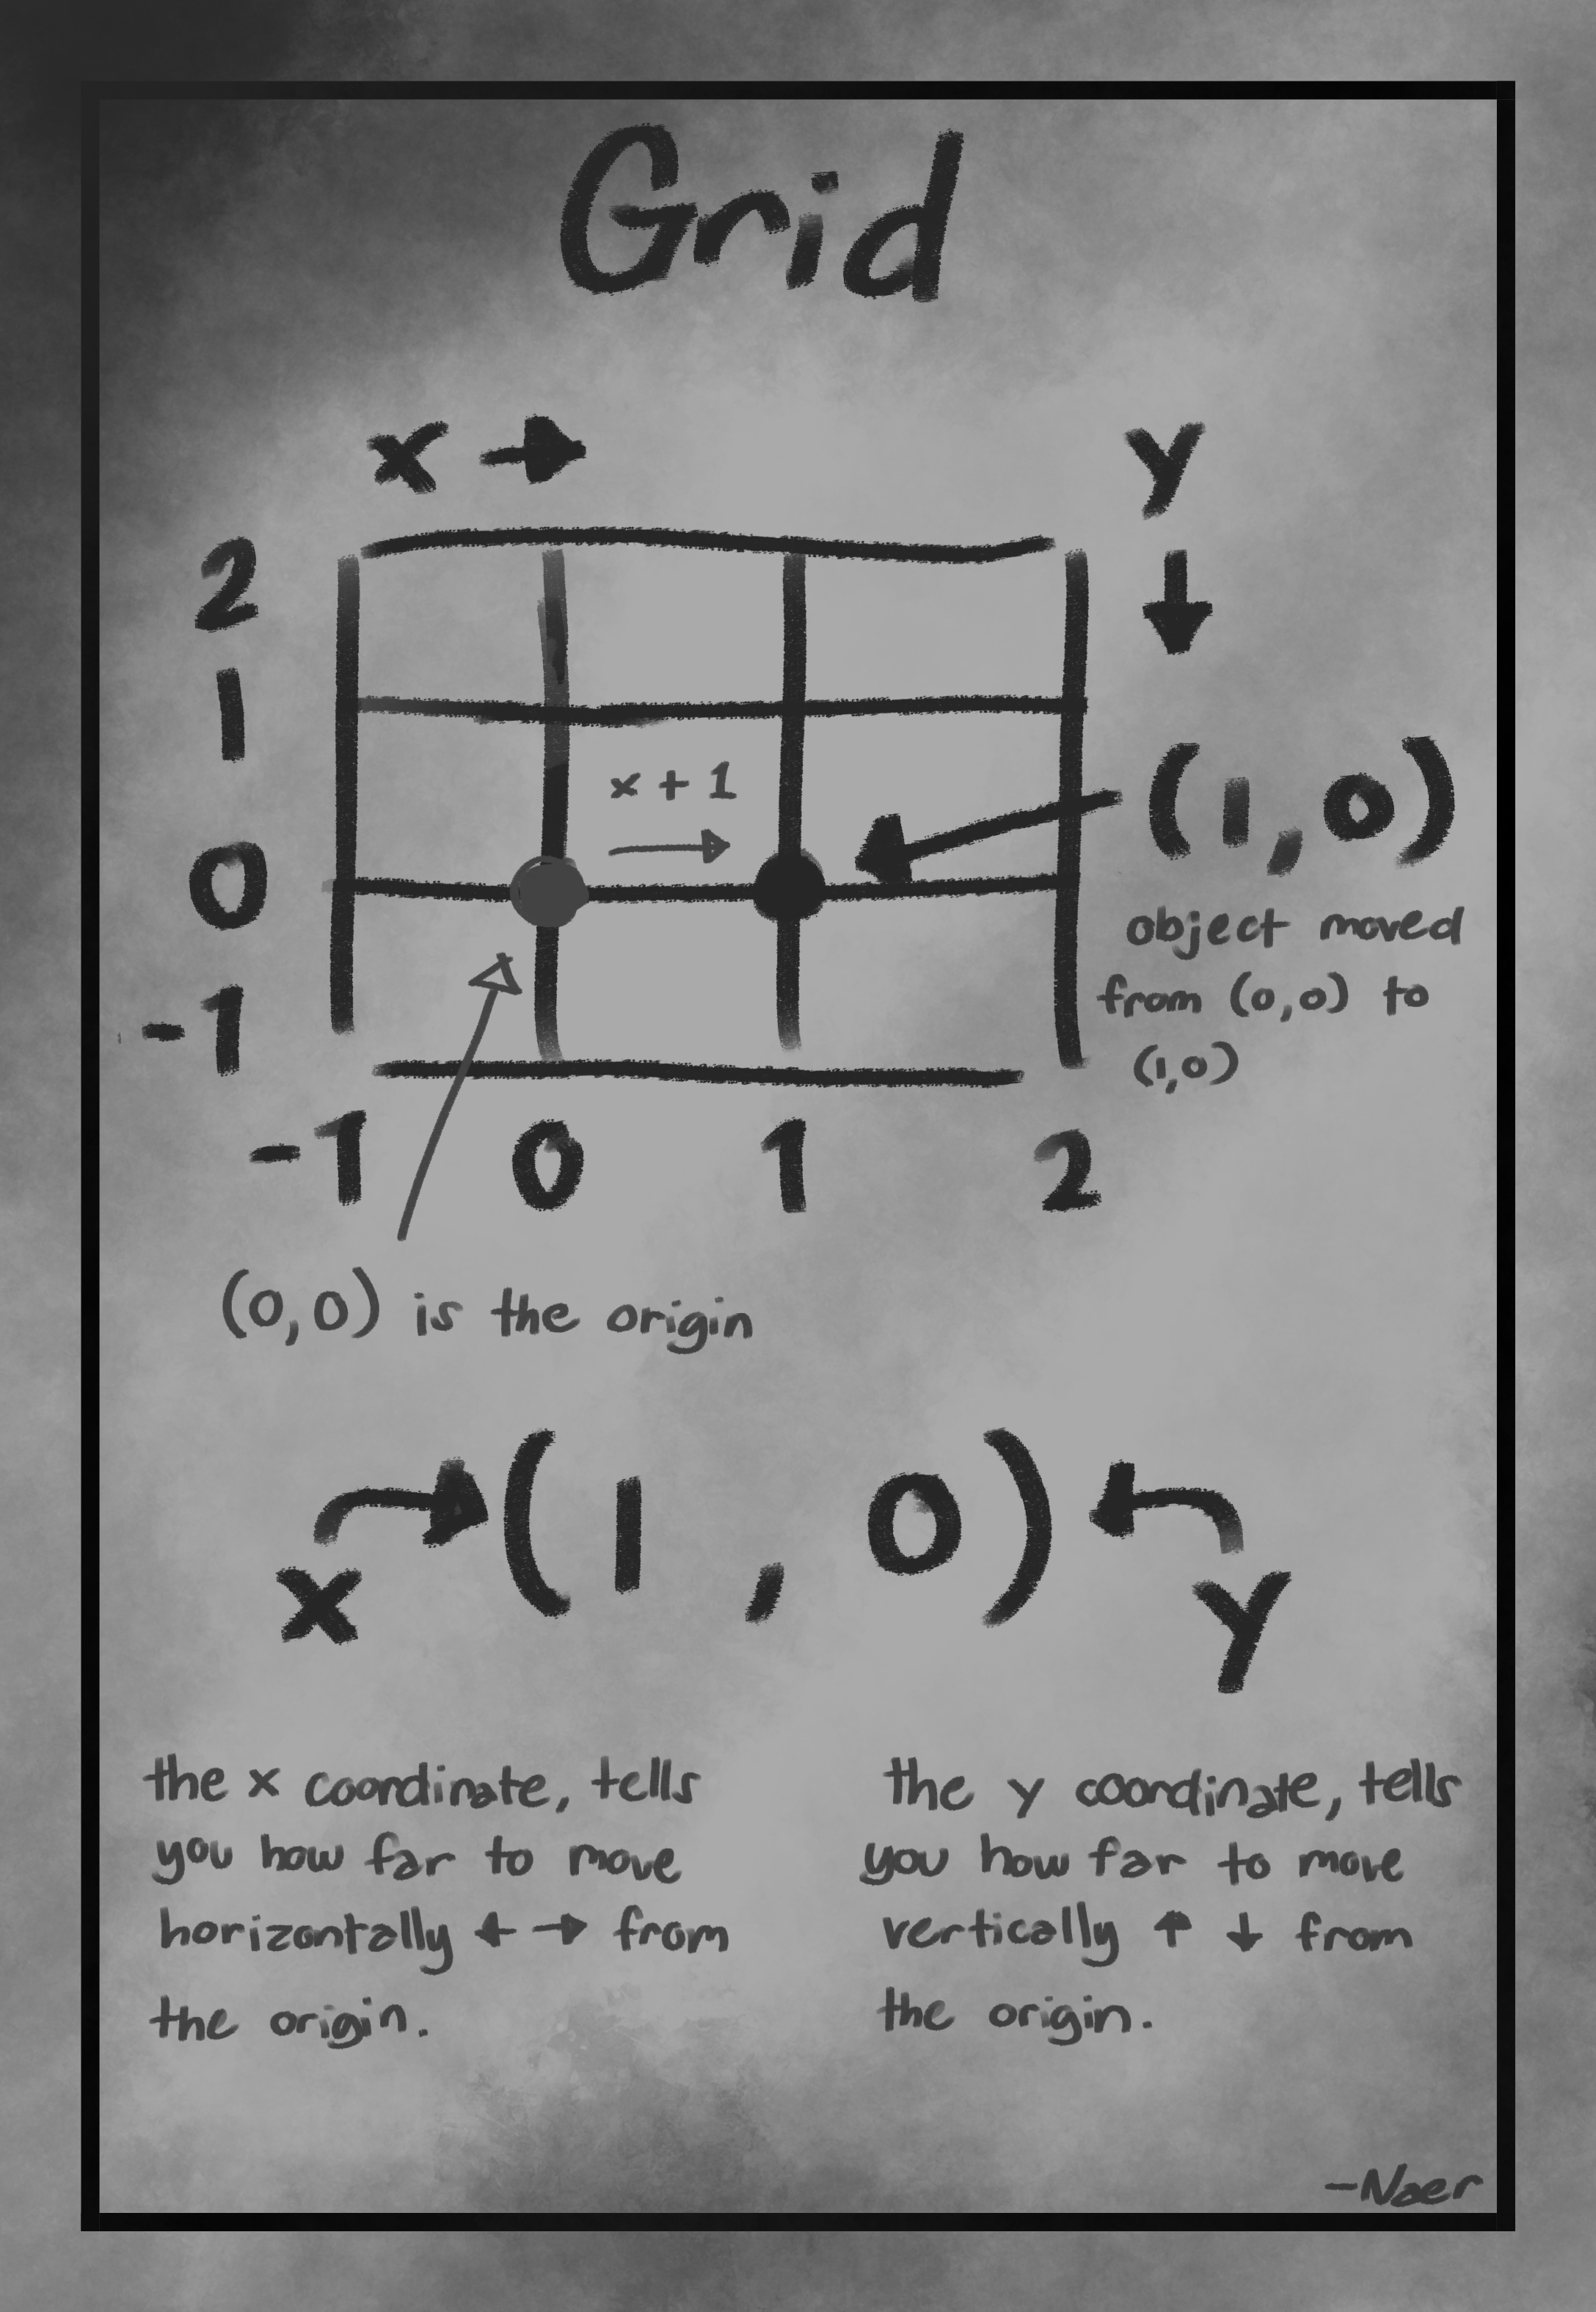 Grid
x → y
↓
2
1
x + 1
→
(1,0)
0
object moved
from (0,0) to
(1,0)
-1
-1 0 1 2
(0,0) is the origin
(1,0)
x
y
the x coordinate, tells
you how far to move
horizontally ← → from
the origin.
the y coordinate, tells
you how far to move
vertically ↑ ↓ from
the origin.
-Naer